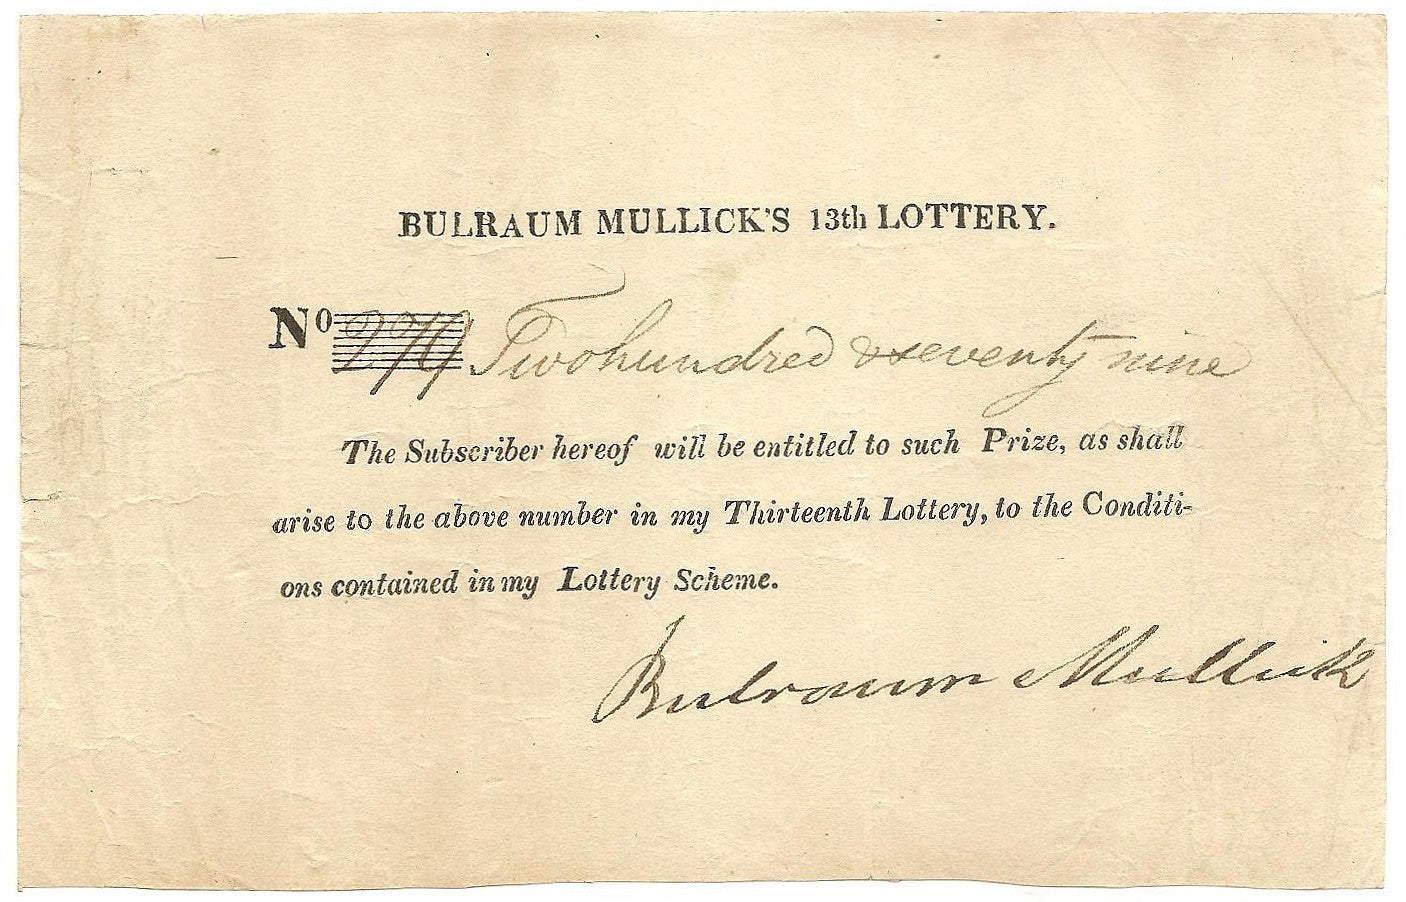 BULRAUM MULLICK'S 13th LOTTERY.
No 279 Two hundred & seventy nine
The Subscriber hereof will be entitled to such Prize, as shall
arise to the above number in my Thirteenth Lottery, to the Conditi-
ons contained in my Lottery Scheme.
Bulraum Mullick